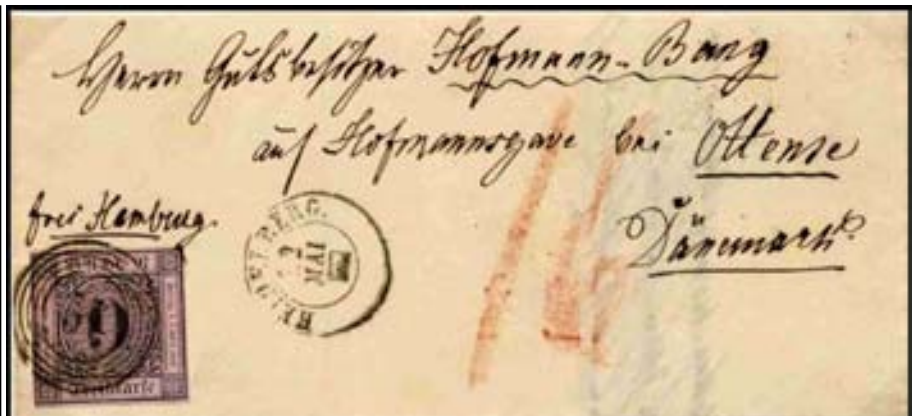 Herrn Gutsbesitzer Hofmann-Bang
auf Hofmannsgave bei Ottense
Dänemark.
frei Hamburg.
HEIDELBERG.
2
MAI
BADEN
9
Freimarke
14